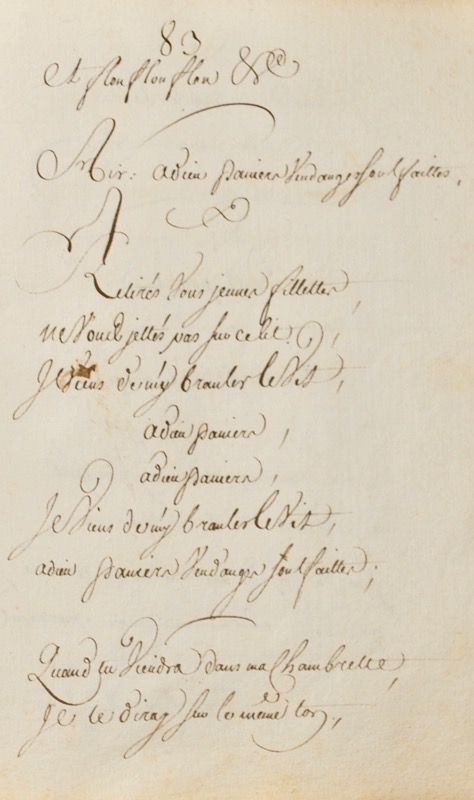 83
et flon flon flon &c
Air: adieu paniers Vendanges sont faittes,
Retirés Vous jeunes fillettes,
ne Vous jettés pas sur ce lit,
Je Viens de m'y branler le Vit,
adieu paniers,
adieu paniers,
Je Viens de m'y branler le Vit,
adieu paniers Vendanges sont faittes;
Quand tu Viendra dans ma Chambrette,
Je te diray sur le même ton,